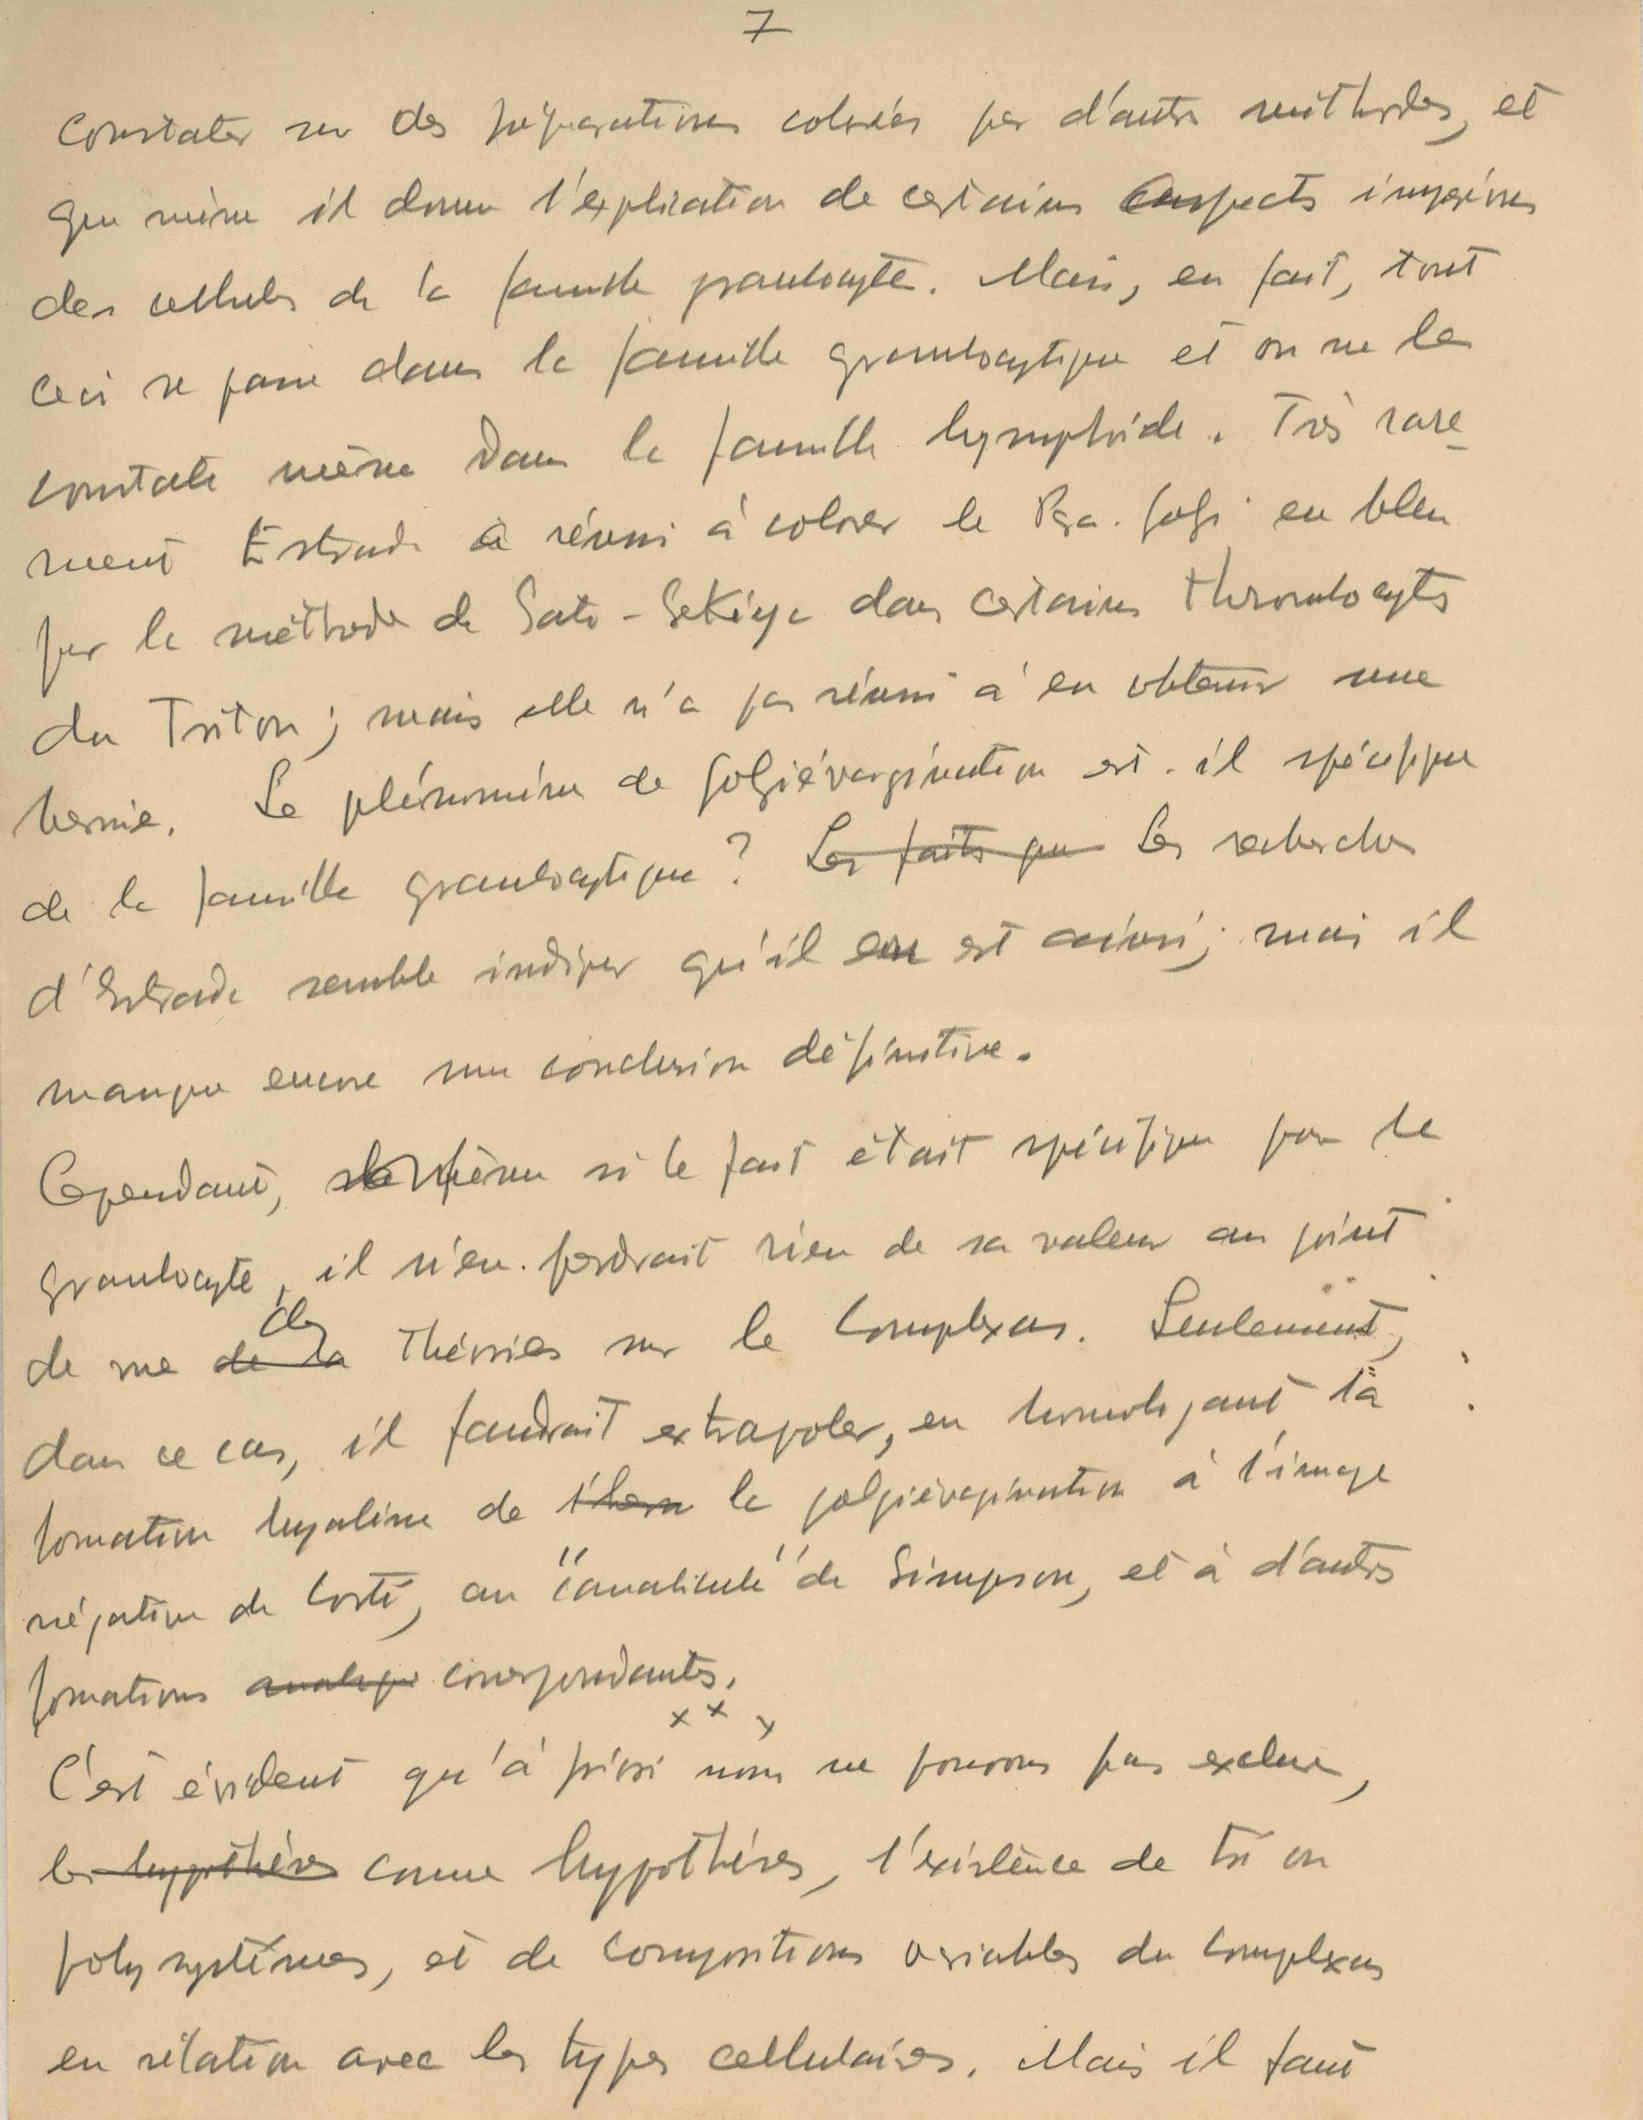 7
constater sur des préparations colorées par d'autres méthodes, et
que même il donne l'explication de certains aspects imprévus
des cellules de la famille granulocyte. Mais, en fait, tout
ceci se passe dans la famille granulocytique et on ne le
constate même dans la famille lymphoïde. Très rare-
ment Estrade a réussi à colorer le Golgi en bleu
par la méthode de Sato-Sekiya dans certains thrombocytes
du Triton; mais elle n'a pas réussi à en obtenir une
hernie. Le phénomène de golgiévagination est-il spécifique
de la famille granulocytique? Les faits que Les recherches
d'Estrade semble indiquer qu'il en est ainsi; mais il
manque encore une conclusion définitive.
Cependant, même si le fait était spécifique pour le
granulocyte, il n'en perdrait rien de sa valeur au point
des
de vue de la théories sur le complexus. Seulement,
dans ce cas, il faudrait extrapoler, en homologant la
formation hyaline de la golgiévagination à l'image
négative de Corti, au "canalicule" de Simpson, et à d'autres
formations correspondantes.
x x x
C'est évident qu'à priori nous ne pouvons pas exclure,
les hypothèses comme hypothèses, l'existence de tri ou
polysystèmes, et de compositions variables du complexus
en rélation avec les types cellulaires. Mais il faut